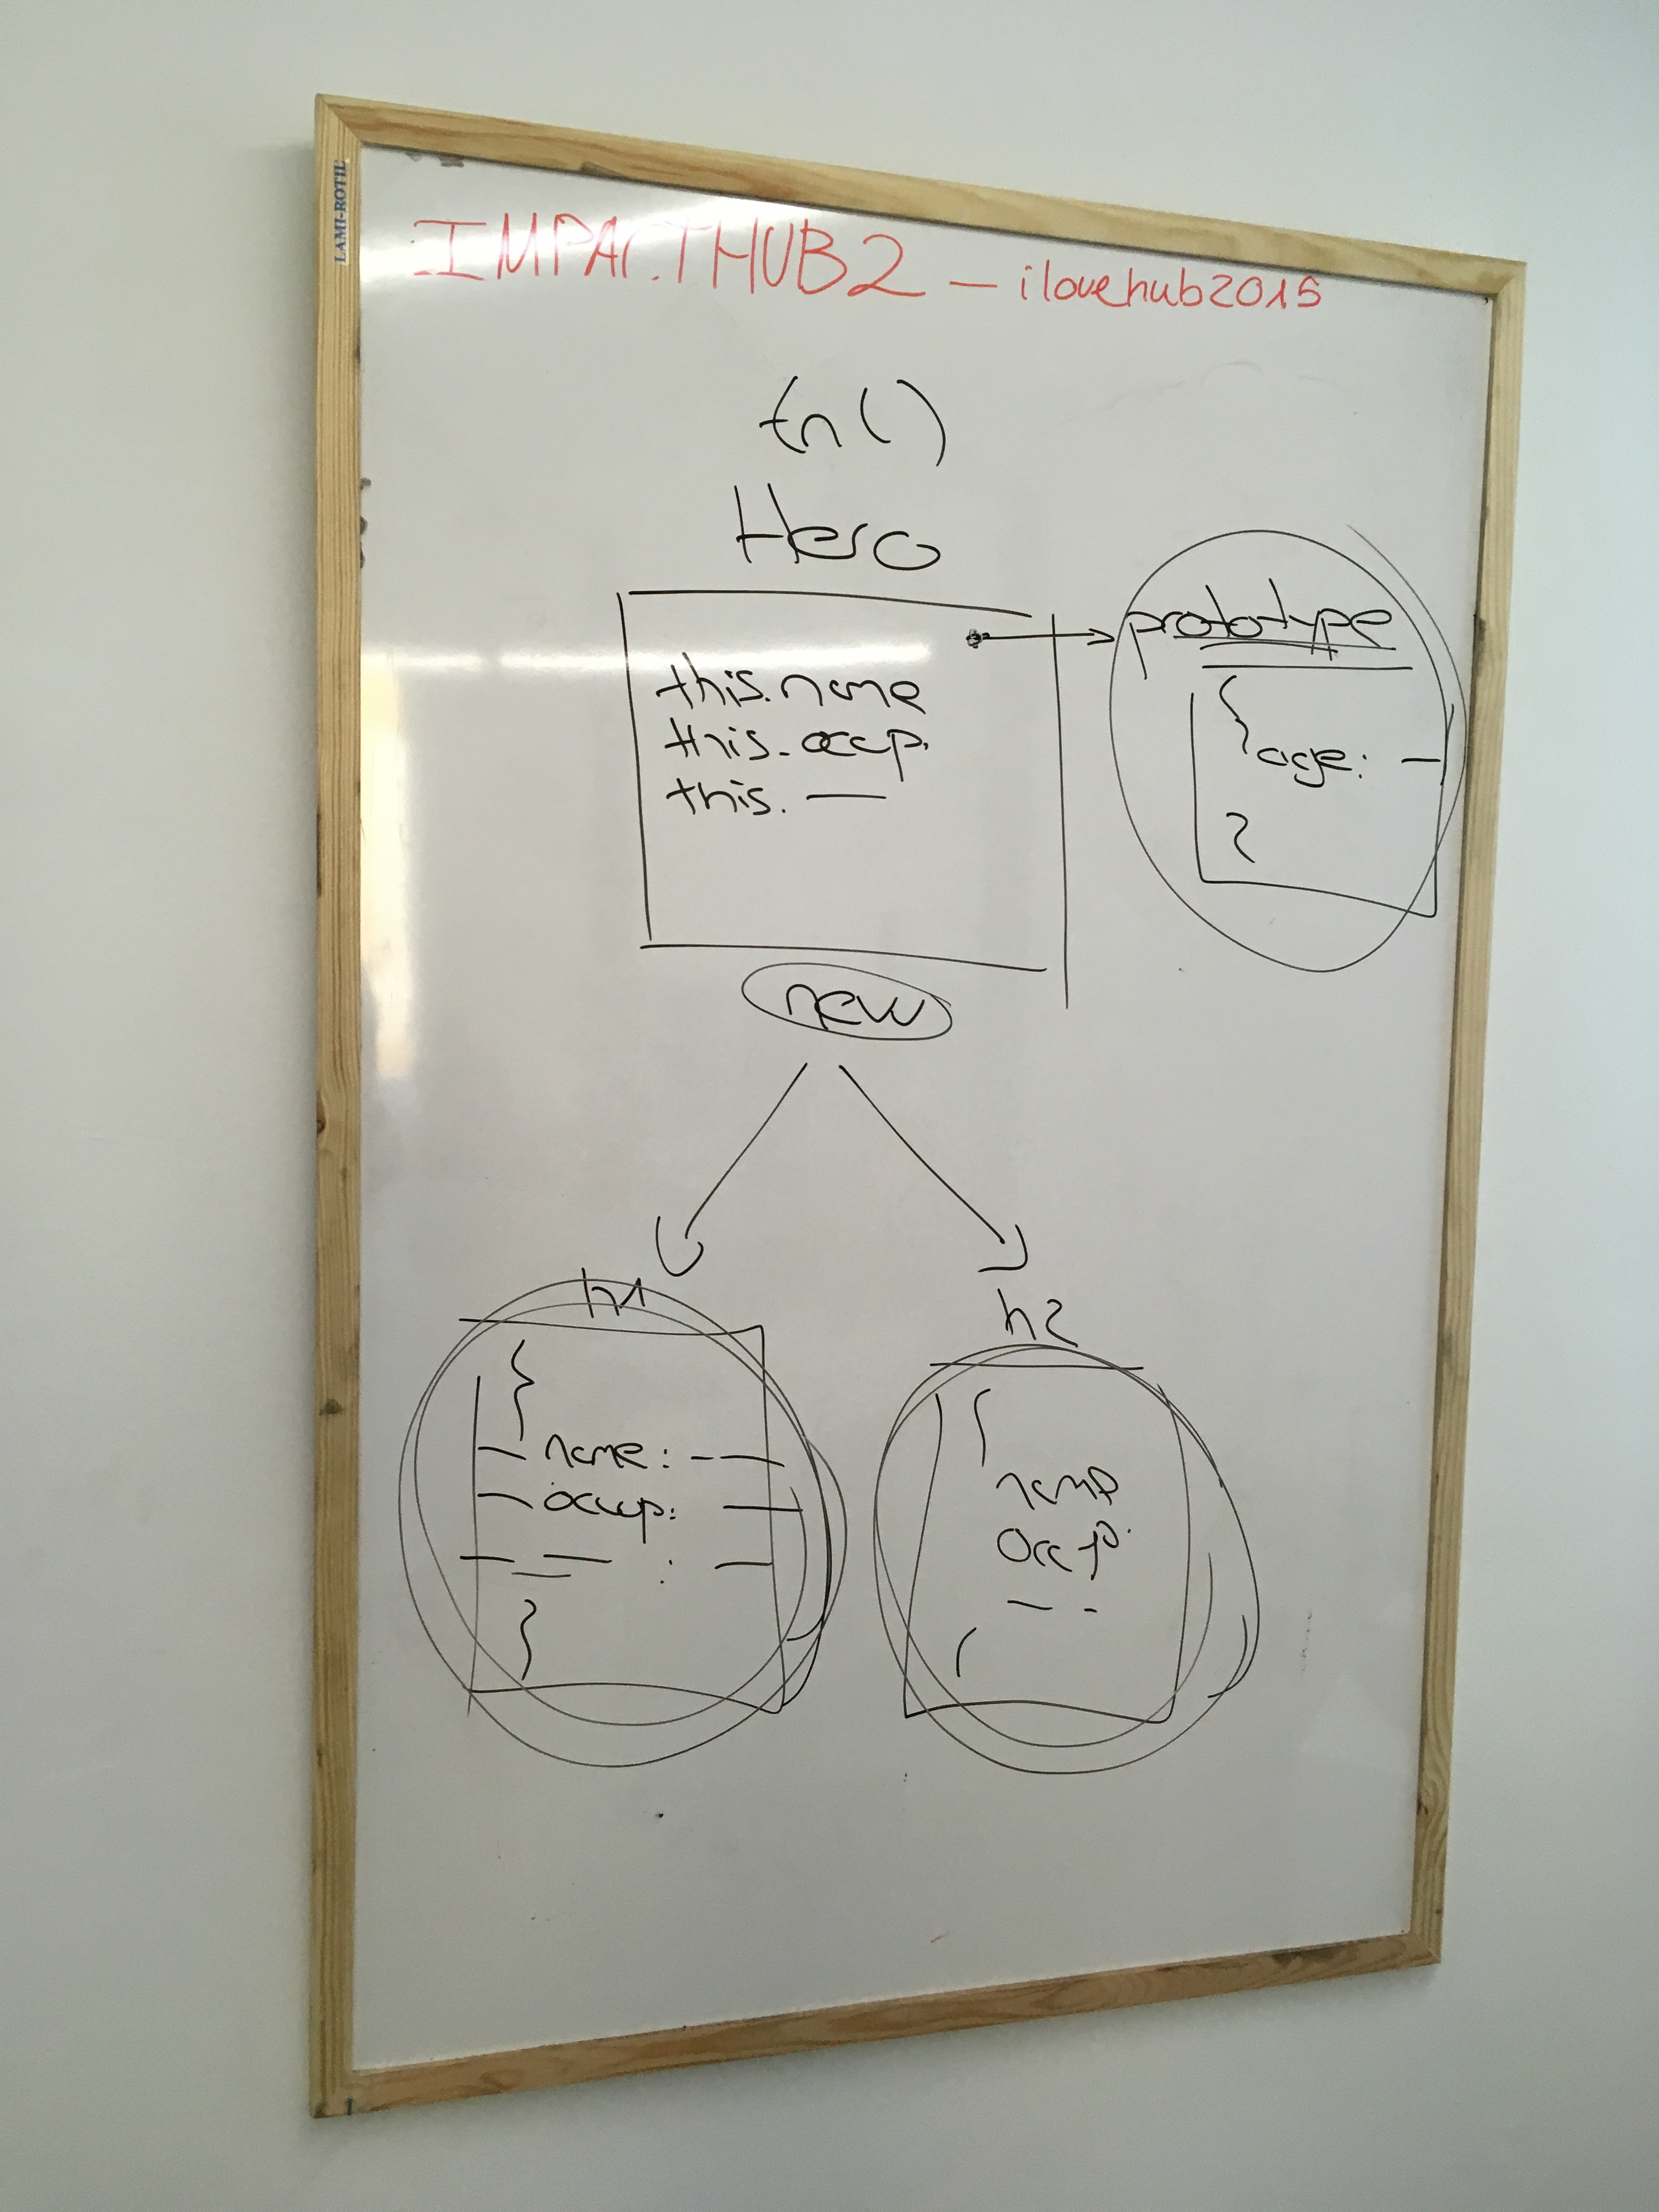 LAMI-ROTIL
IMPACTHUB2 – ilovehub2015
fn()
Hero
this.name
this.occup.
this. —
prototype
{
age: —
}
new
h1
{
— name: - —
— occup: —
— — : —
}
h2
{
name
occup.
— -